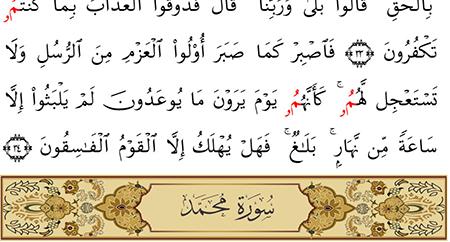 بِالْحَقِّ قَالُوا۟ بَلَىٰ وَرَبِّنَا قَالَ فَذُوقُوا۟ الْعَذَابَ بِمَا كُنتُمُۥ
تَكْفُرُونَ ٣٣ فَاصْبِرْ كَمَا صَبَرَ أُو۟لُوا۟ الْعَزْمِ مِنَ الرُّسُلِ وَلَا
تَسْتَعْجِل لَّهُمُۥ ۚ كَأَنَّهُمُۥ يَوْمَ يَرَوْنَ مَا يُوعَدُونَ لَمْ يَلْبَثُوا۟ إِلَّا
سَاعَةً مِّن نَّهَارٍ ۚ بَلَٰغٌ ۚ فَهَلْ يُهْلَكُ إِلَّا الْقَوْمُ الْفَٰسِقُونَ ٣٤
سُورَةُ مُحَمَّد